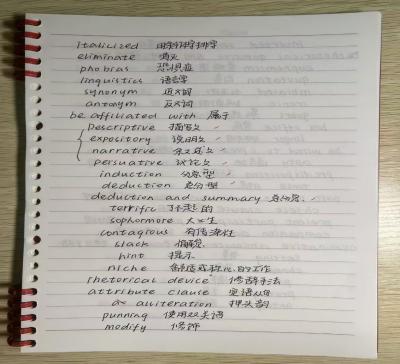 Italicized 用斜体排字
eliminate 消灭
phobias 恐惧症
linguistics 语言学
synonym 近义词
antonym 反义词
be affiliated with 属于
Descriptive 描写文
expository 说明文
narrative 记叙文
persuative 议论文
induction 分总型
deduction 总分型
deduction and summary 总分总
terrific 了不起的
sophormore 大二生
contagious 有传染性
slack 懈怠
hint 提示
niche 舒适或称心的工作
rhetorical device 修辞手法
attribute clause 定语从句
alliteration 押头韵
punning 使用双关语
modify 修饰